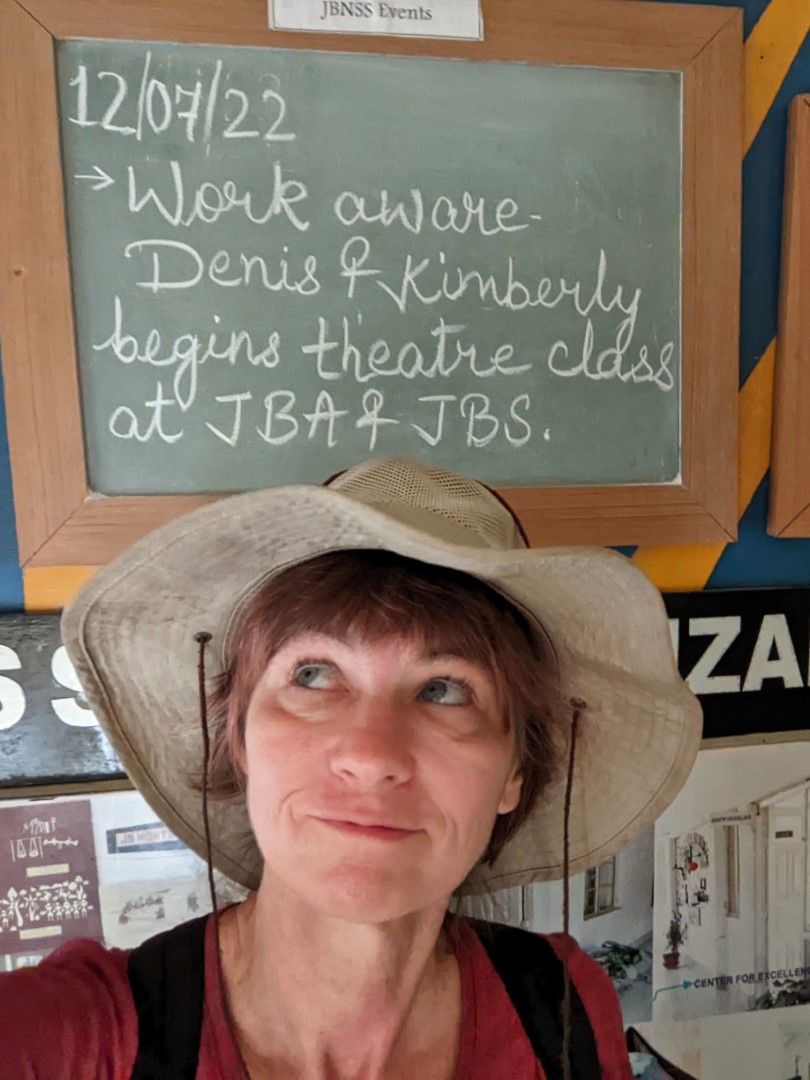 JBNSS Events
12/07/22
→ Work aware-
Denis & Kimberly
begins theatre class
at JBA & JBS.
CENTER FOR EXCELLEN